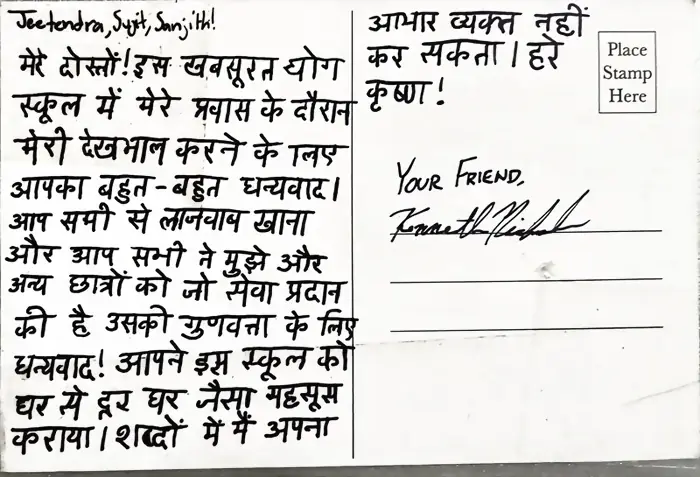 Jeetendra, Sujit, Sanjith!
मेरे दोस्तों! इस खुबसूरत योग
स्कूल में मेरे प्रवास के दौरान
मेरी देखभाल करने के लिए
आपका बहुत-बहुत धन्यवाद।
आप सभी से लाजवाब खाना
और आप सभी ने मुझे और
अन्य छात्रों को जो सेवा प्रदान
की है उसकी गुणवत्ता के लिए
धन्यवाद! आपने इस स्कूल को
घर से दूर घर जैसा महसूस
कराया। शब्दों में मैं अपना
आभार व्यक्त नहीं
कर सकता। हरे
कृष्ण!
Place
Stamp
Here
YOUR FRIEND,
Kenneth